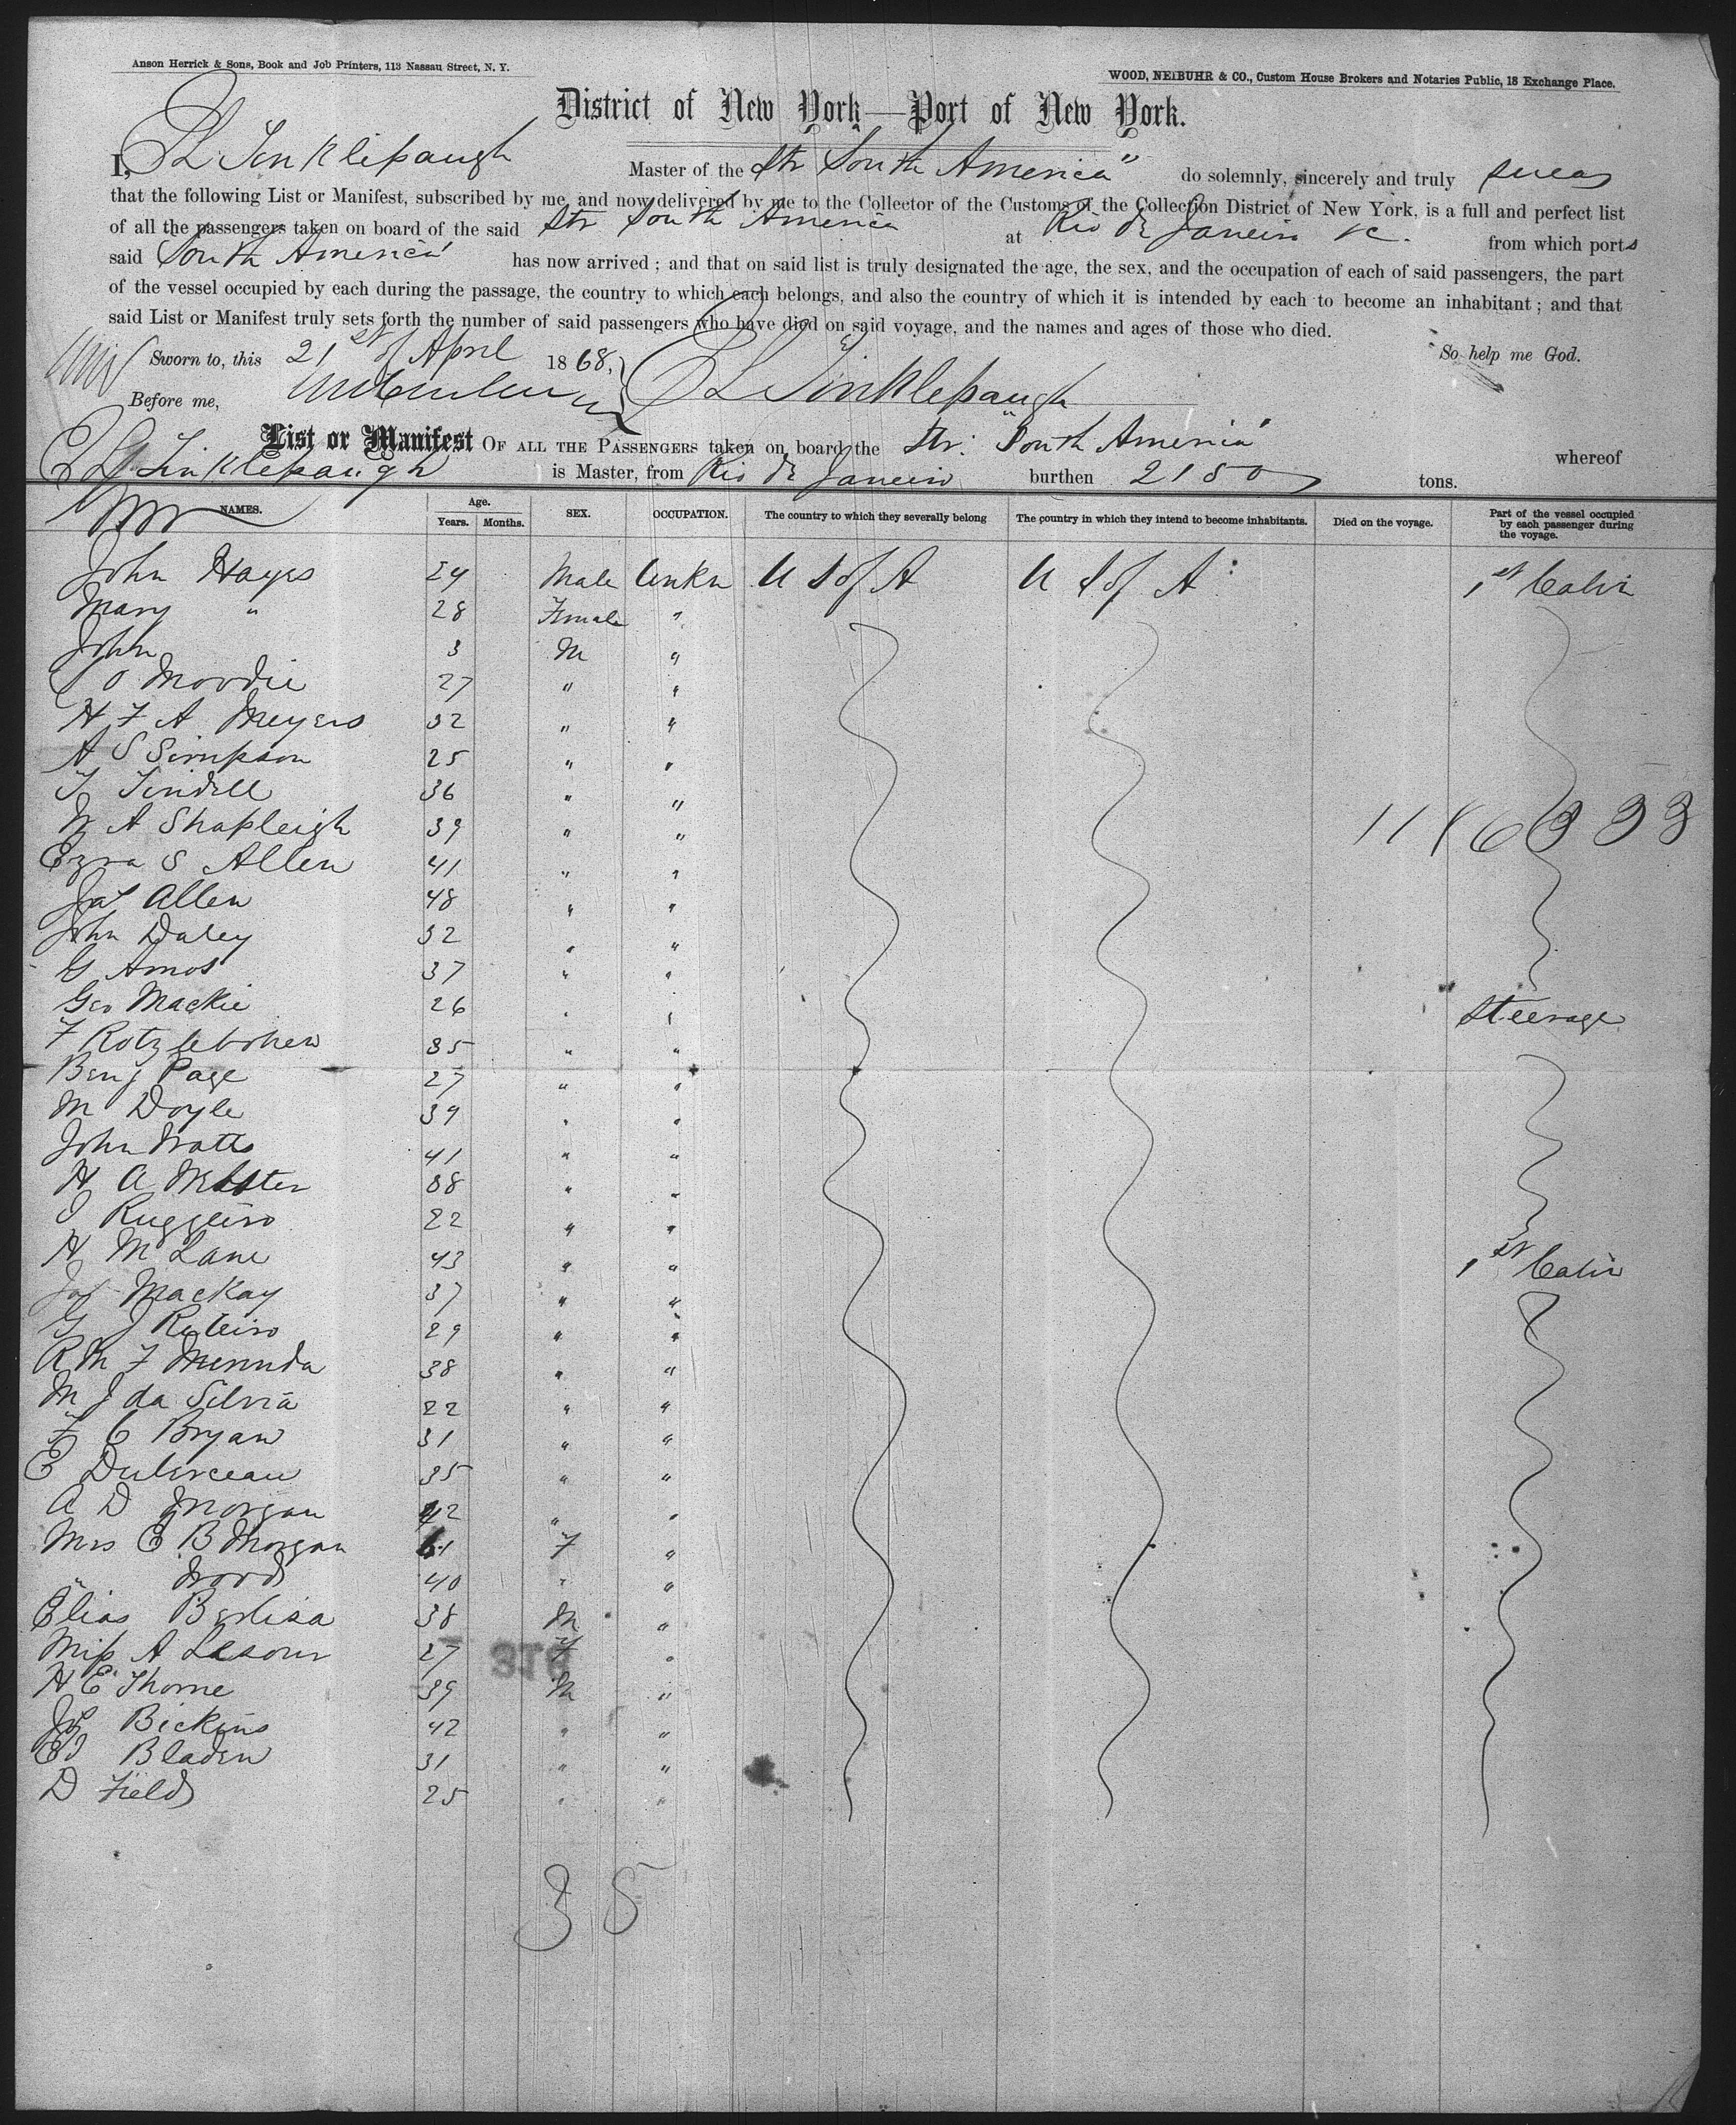 Anson Herrick & Sons, Book and Job Printers, 113 Nassau Street, N. Y.
WOOD, NEIBUHR & CO., Custom House Brokers and Notaries Public, 18 Exchange Place.
District of New York—Port of New York.
I, L Tinklepaugh Master of the Str "South America" do solemnly, sincerely and truly swear
that the following List or Manifest, subscribed by me, and now delivered by me to the Collector of the Customs of the Collection District of New York, is a full and perfect list
of all the passengers taken on board of the said Str South America at Rio de Janeiro &c. from which ports
said South America has now arrived; and that on said list is truly designated the age, the sex, and the occupation of each of said passengers, the part
of the vessel occupied by each during the passage, the country to which each belongs, and also the country of which it is intended by each to become an inhabitant; and that
said List or Manifest truly sets forth the number of said passengers who have died on said voyage, and the names and ages of those who died.
Sworn to, this 21st of April 1868, So help me God.
Before me, L Tinklepaugh
List or Manifest OF ALL THE PASSENGERS taken on board the Str: "South America" whereof
L Tinklepaugh is Master, from Rio de Janeiro burthen 2150 tons.
NAMES. Age. Years. Months. SEX. OCCUPATION. The country to which they severally belong The country in which they intend to become inhabitants. Died on the voyage. Part of the vessel occupied by each passenger during the voyage.
John Hayes 24 Male Unkn U S of A U S of A 1st Cabin
Mary " 28 Female "
John 3 M "
O Moodie 27 " "
H F A Meyers 32 " "
A S Simpson 25 " "
T Tindell 36 " "
W A Shapleigh 39 " "
Ezra S Allen 41 " "
Jas Allen 48 " "
John Daley 32 " "
G Amos 37 " "
Geo Mackie 26 " " Steerage
F 35 " "
Benj Page 27 " "
M Doyle 39 " "
John Watts 41 " "
H A Webster 38 " "
J Ruggeiro 22 " "
H M Lane 43 " " 1st Cabin
Jas Mackay 37 " "
G J Ribeiro 29 " "
R M F Mennda 38 " "
M J da Silvia 22 " "
F C Bryan 31 " "
E Duberceau 35 " "
A D Morgan 42 " "
Mrs E B Morgan 41 F "
" Wood 40 " "
Elias Barlisa 38 M "
Miss A Lesour 27 F "
H E Thorne 39 M "
Jas Bickins 42 " "
Ed Bladen 31 " "
D Field 25 " "
35